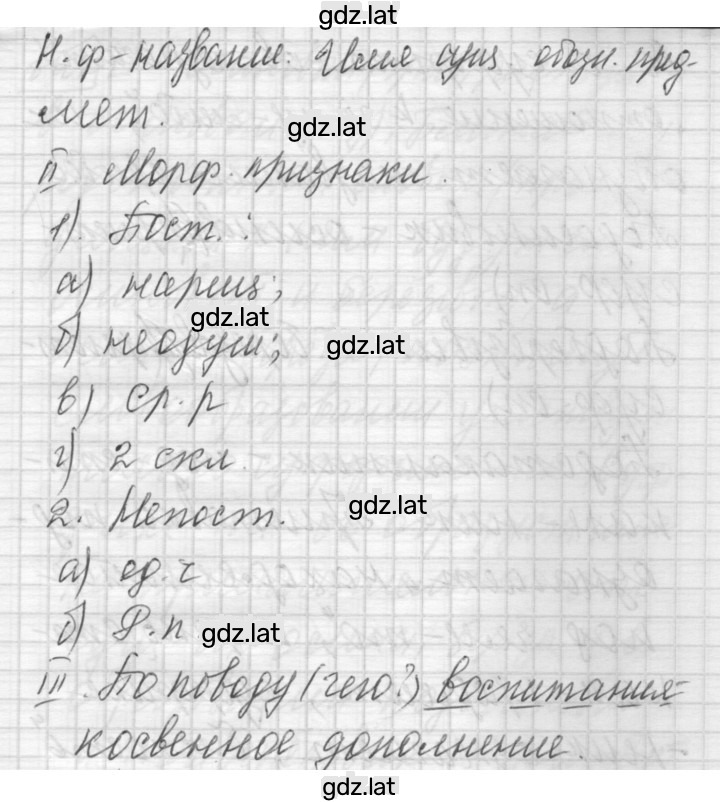 gdz.lat
Н.ф - название. Имя сущ. обозн. пред-
мет.
gdz.lat
II Морф. признаки.
1). Пост. :
а) нариц;
gdz.lat
б) неодуш;
gdz.lat
в) ср. р
г) 2 скл.
2. Непост.
gdz.lat
а) ед. ч
б) Р. п
gdz.lat
III. По поводу (чего?) воспитания-
косвенное дополнение.
gdz.lat